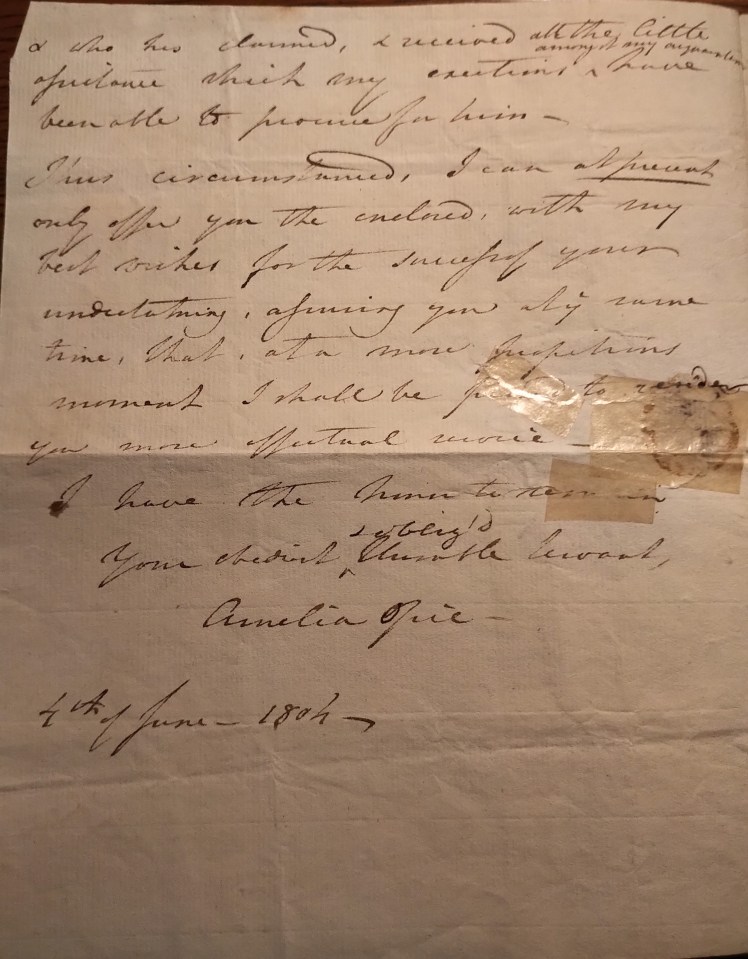 & who has claimed, & received all the little
amongst my acquaintance
assistance which my exertions have
been able to procure for him –
Thus circumstanced, I can at present
only offer you the enclosed, with my
best wishes for the success of your
undertaking, assuring you at ye same
time, that, at a more propitious
moment I shall be to render
you more effectual service –
I have the honor to remain
& oblig'd
Your obedient Humble Servant,
Amelia Opie –
4th of June – 1804 –